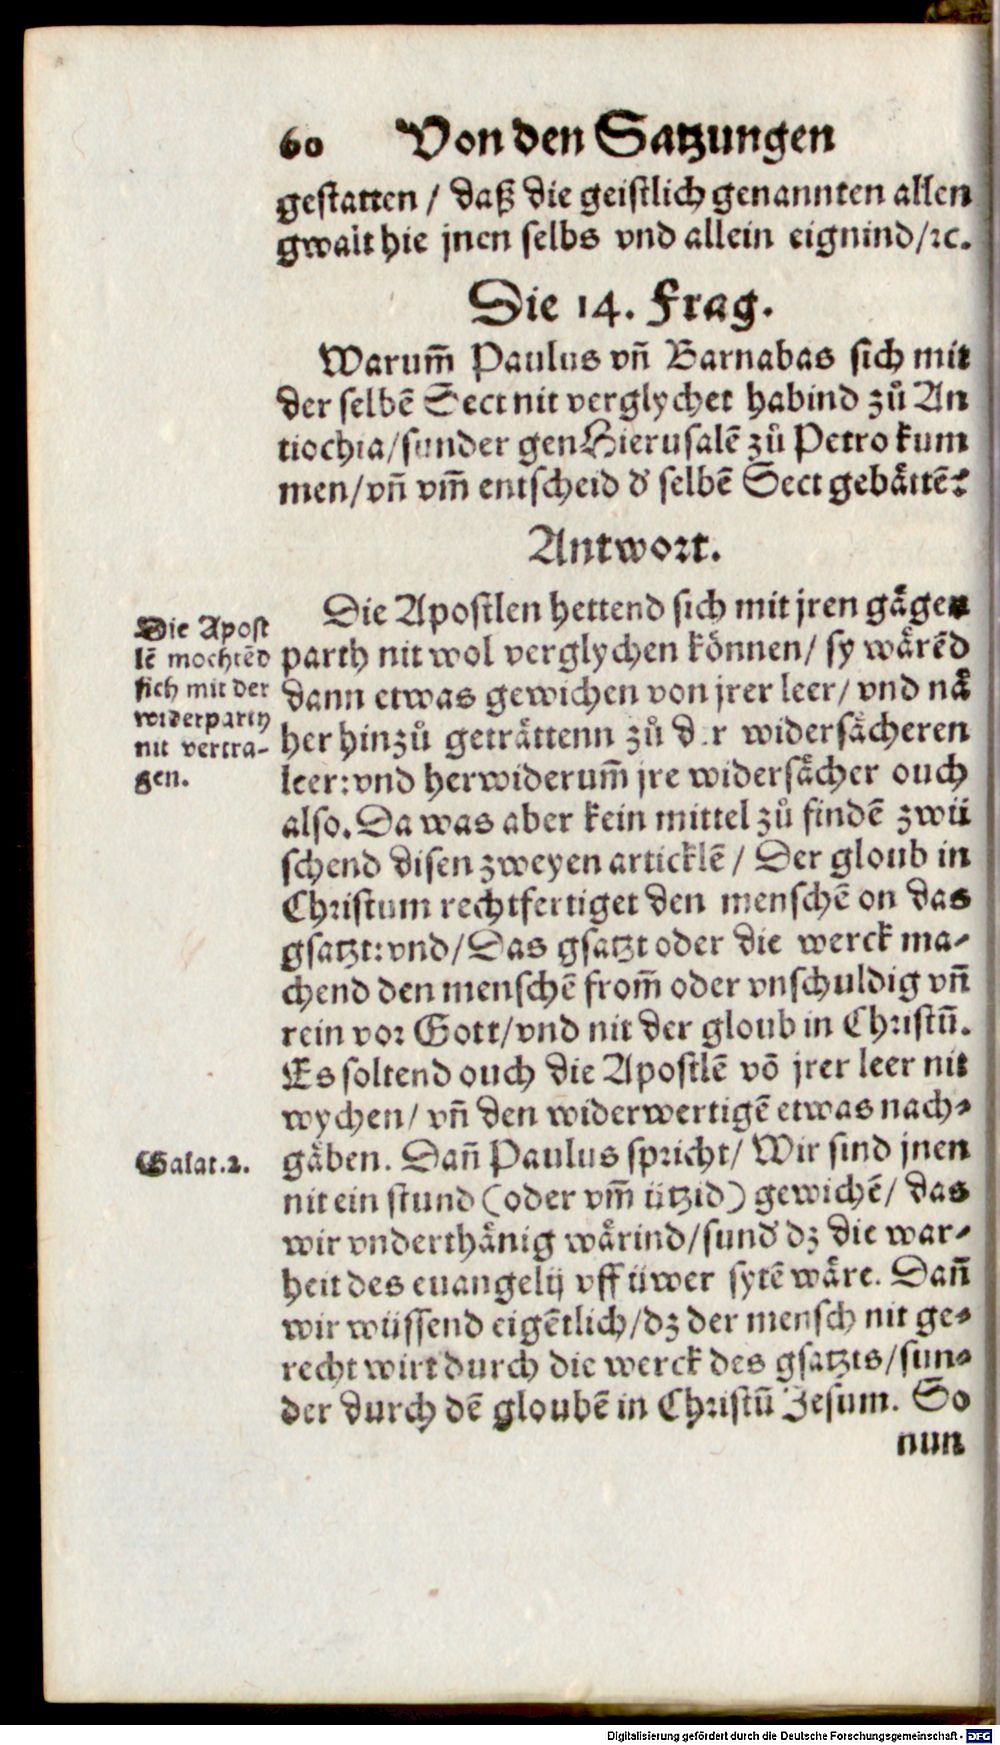 60 Von den Satzungen
gestatten / daß die geistlich genannten allen
gwalt hie jnen selbs vnd allein eignind/ꝛc.
Die 14. Frag.
Warum̃ Paulus vñ Barnabas sich mit
der selbẽ Sect nit verglychet habind zů An
tiochia/sunder gen Hierusalẽ zů Petro kum
men/vñ vm̃ entscheid d' selbẽ Sect gebättẽ?
Antwort.
Die Apostlen hettend sich mit jren gägen
parth nit wol verglychen können/ sy wärẽd
dann etwas gewichen von jrer leer/ vnd nä
her hinzů geträttenn zů d.r widersächeren
leer: vnd herwiderum̃ jre widersächer ouch
also. Da was aber kein mittel zů findẽ zwü
schend disen zweyen articklẽ / Der gloub in
Christum rechtfertiget den menschẽ on das
gsatzt: vnd/Das gsatzt oder die werck ma-
chend den menschẽ from̃ oder vnschuldig vñ
rein vor Gott/vnd nit der gloub in Christũ.
Es soltend ouch die Apostlẽ võ jrer leer nit
wychen/ vñ den widerwertigẽ etwas nach-
gäben. Dañ Paulus spricht/ Wir sind jnen
nit ein stund (oder vm̃ ützid) gewichẽ/ das
wir vnderthänig wärind/sund' dz die war-
heit des euangelij vff üwer sytẽ wäre. Dañ
wir wüssend eigẽtlich/dz der mensch nit ge-
recht wirt durch die werck des gsatzts/sun-
der durch dẽ gloubẽ in Christũ Jesum. So
nun
Die Apost
lẽ mochtẽd
sich mit der
widerparth
nit vertra-
gen.
Galat.2.
Digitalisierung gefördert durch die Deutsche Forschungsgemeinschaft - DFG